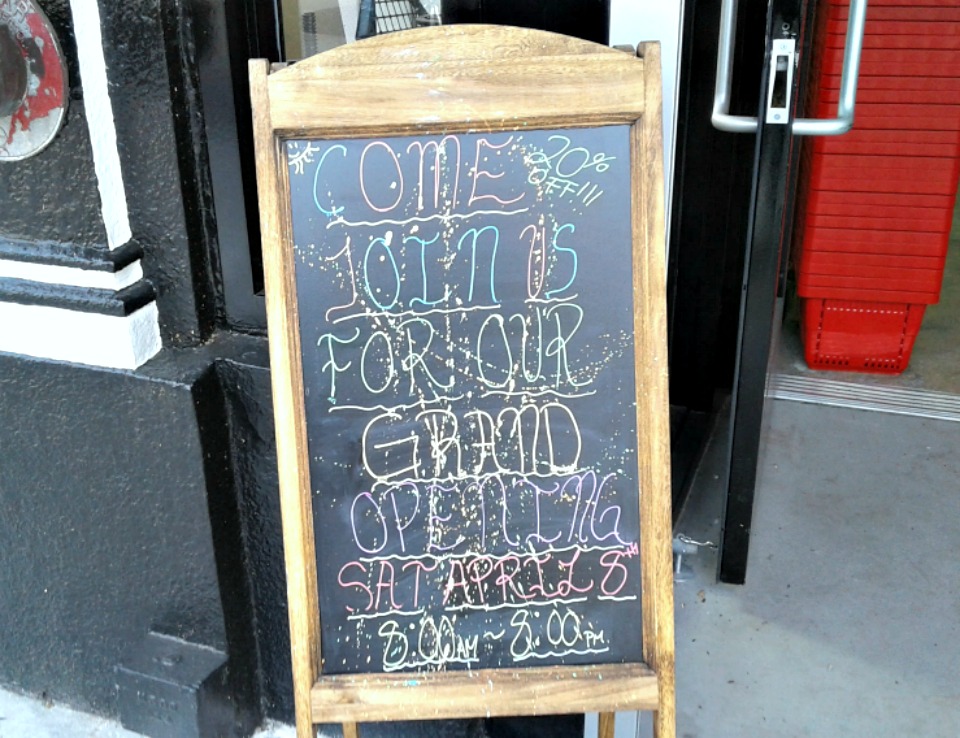 COME
20%
OFF!!!
JOIN US
FOR OUR
GRAND
OPENING
SAT APRIL 8th
8:00AM ~ 8:00PM